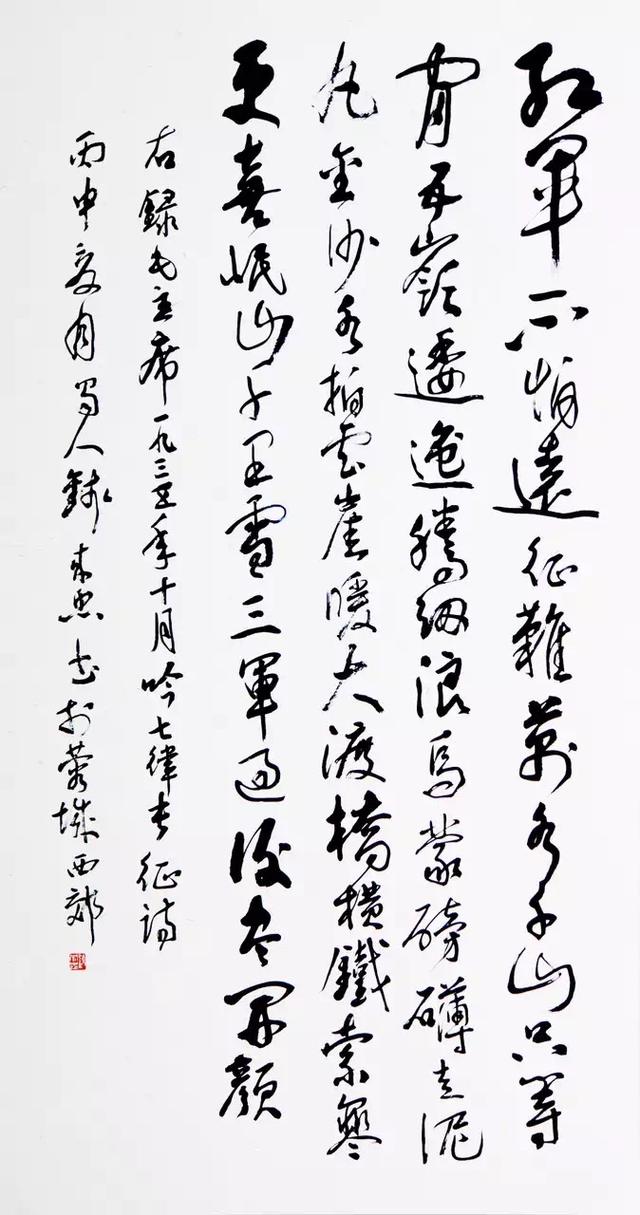 紅軍不怕遠征難萬水千山只等
閒五嶺逶迤騰細浪烏蒙磅礴走泥
丸金沙水拍雲崖暖大渡橋橫鐵索寒
更喜岷山千里雪三軍過後盡開顏
右録毛主席一九三五年十月吟七律長征詩
丙申夏月蜀人錢来忠書於蓉城西郊